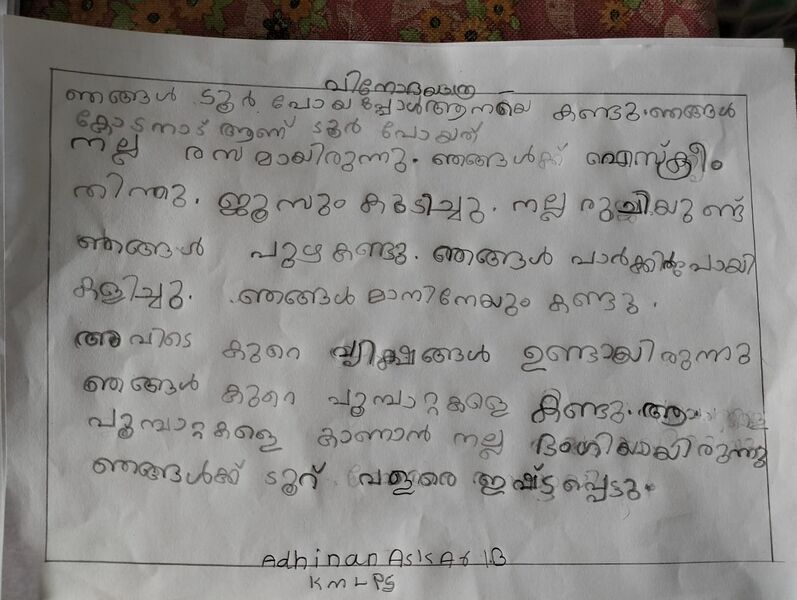 വിനോദയാത്ര
ഞങ്ങൾ ടൂർ പോയപ്പോൾ ആനയെ കണ്ടു. ഞങ്ങൾ
കോടനാട് ആണ് ടൂർ പോയത്
നല്ല രസമായിരുന്നു. ഞങ്ങൾക്ക് ഐസ്ക്രീം
തിന്നു. ജൂസും കുടിച്ചു. നല്ല രുചിയുണ്ട്
ഞങ്ങൾ പുഴ കണ്ടു. ഞങ്ങൾ പാർക്കിൽ പോയി
കളിച്ചു. ഞങ്ങൾ മാനിനേയും കണ്ടു.
അവിടെ കുറെ വൃക്ഷങ്ങൾ ഉണ്ടായിരുന്നു
ഞങ്ങൾ കുറെ പൂമ്പാറ്റകളെ കണ്ടു.
പൂമ്പാറ്റകളെ കാണാൻ നല്ല ഭംഗിയായിരുന്നു
ഞങ്ങൾക്ക് ടൂറ് വളരെ ഇഷ്ട്ടപ്പെടു.
Adhinan Askar 1.B
KMLPS